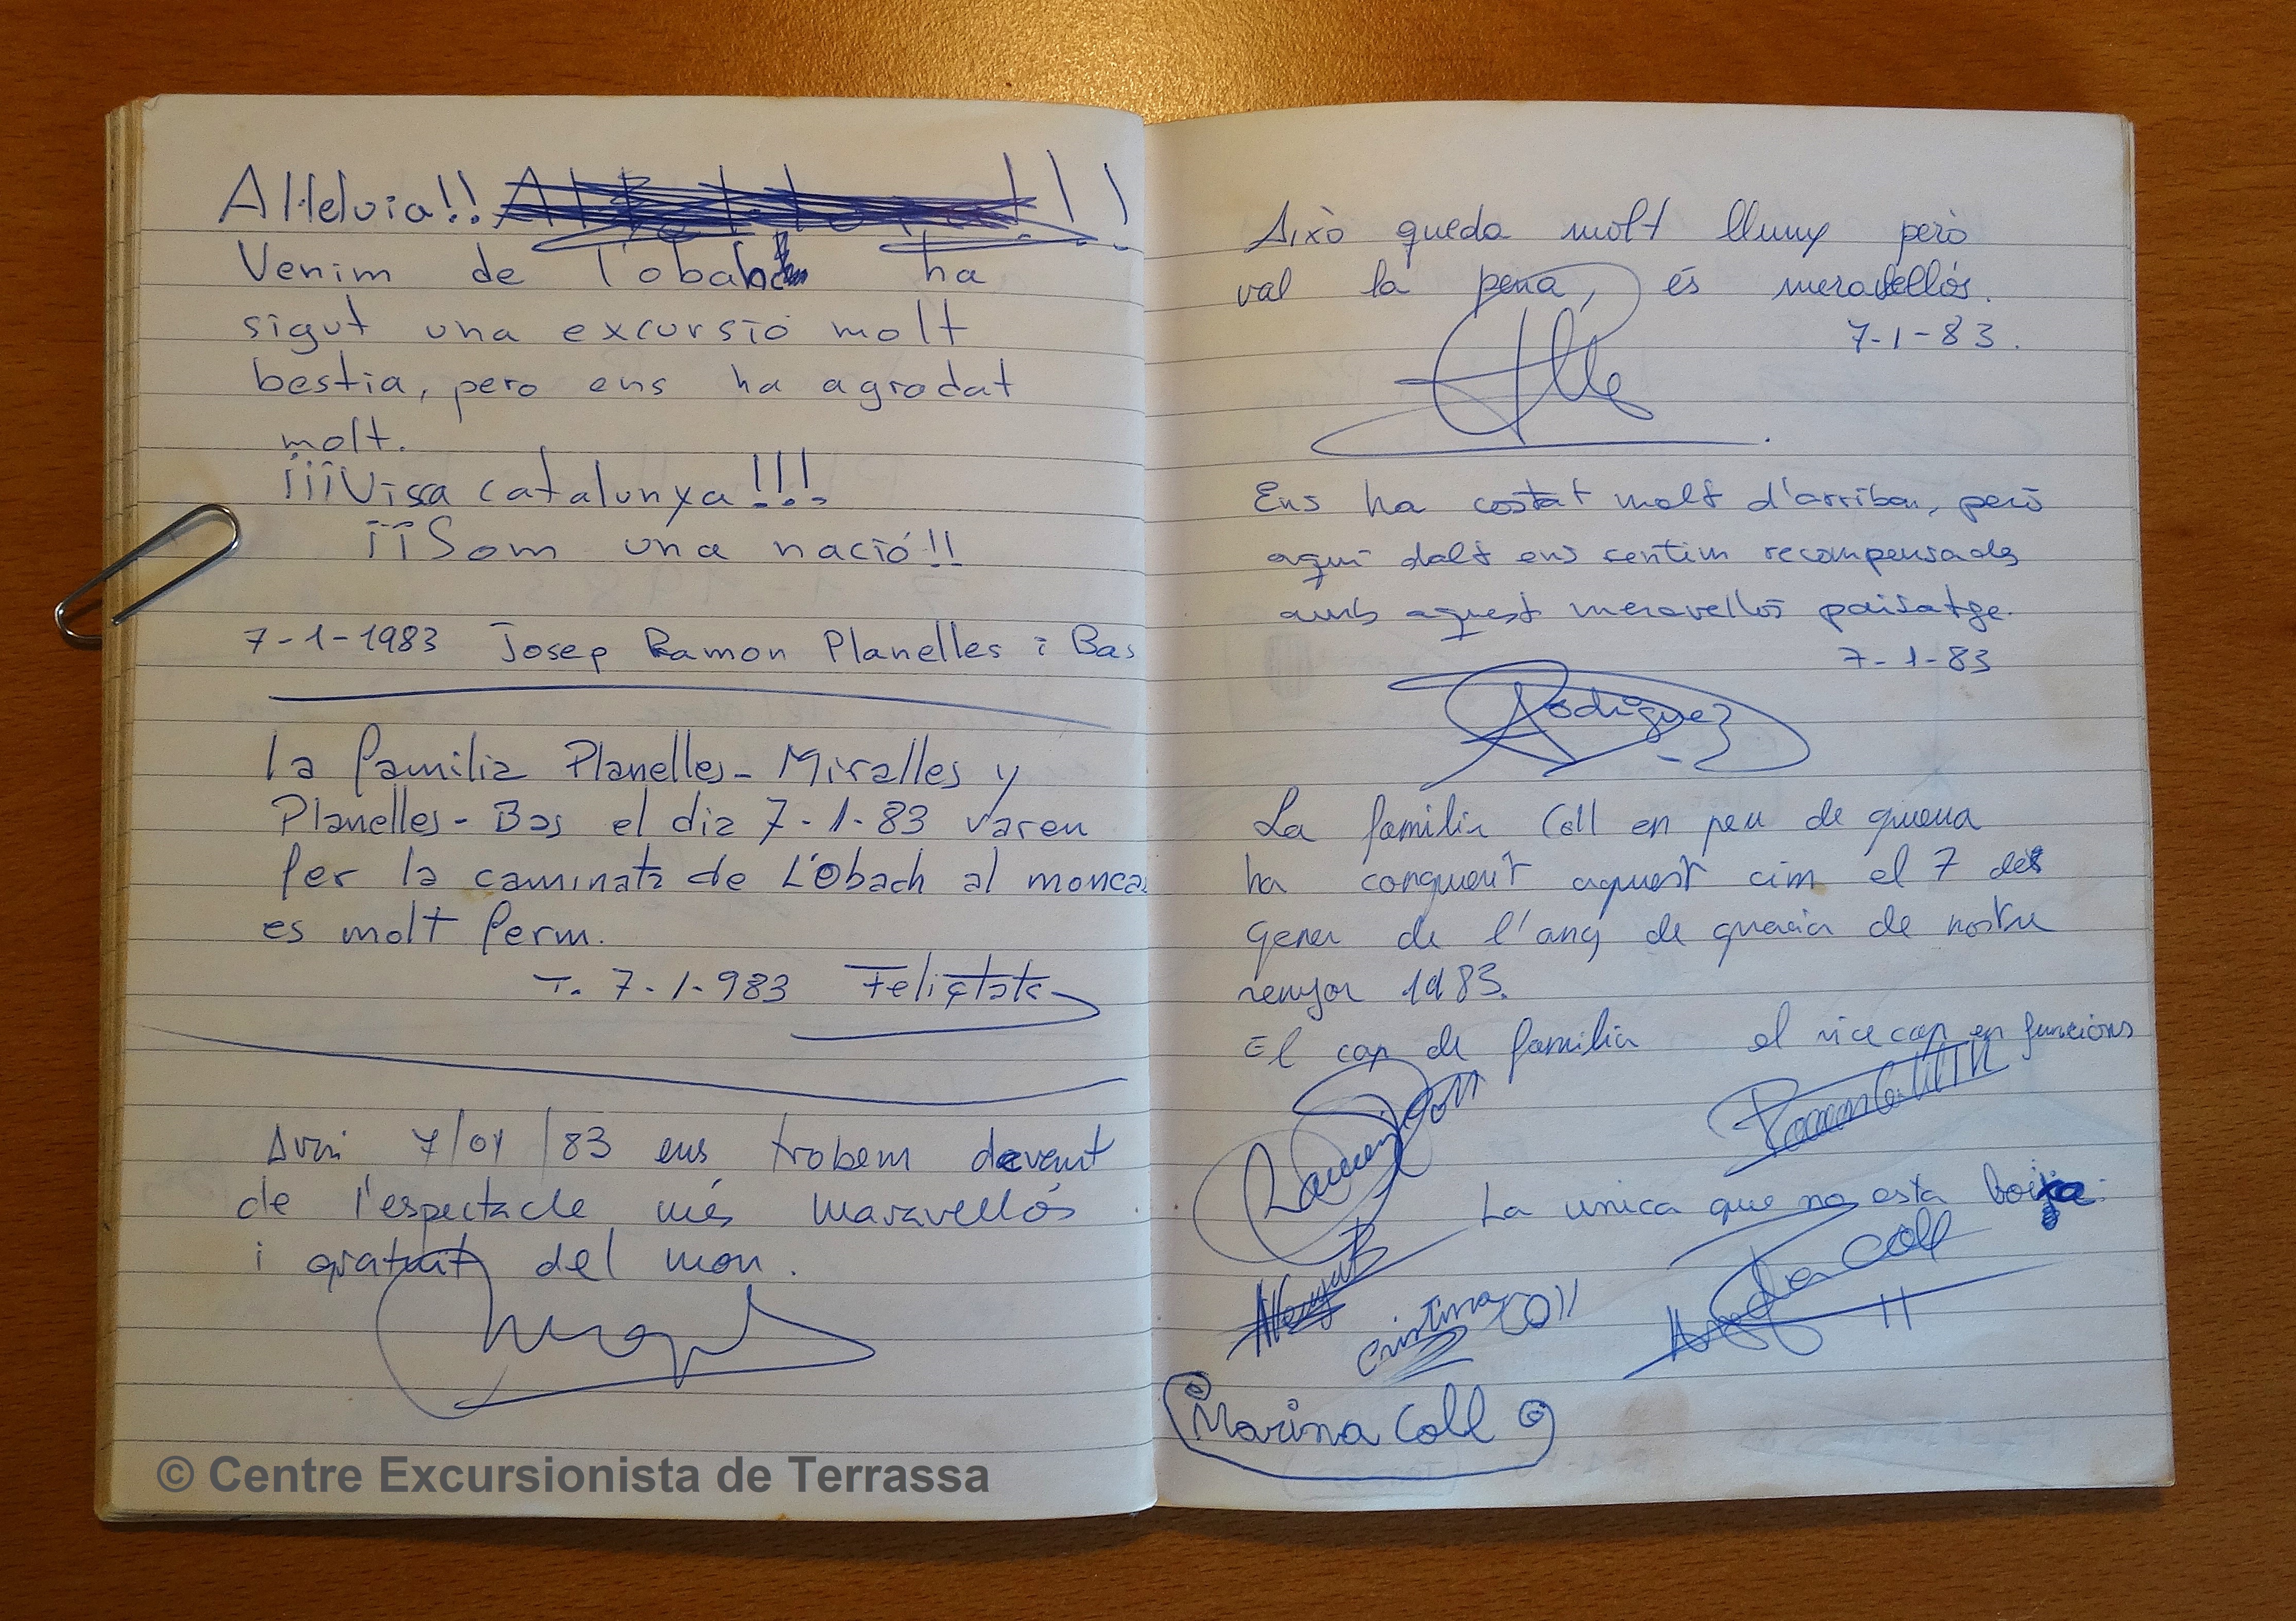 Al·leluia!! !!
Venim de l'obach ha
sigut una excursió molt
bestia, pero ens ha agradat
molt.
¡¡¡Visca catalunya!!!
¡¡Som una nació!!
7-1-1983 Josep Ramon Planelles i Bas
la familia Planelles-Miralles y
Planelles-Bas el dia 7-1-83 varen
fer la caminata de L'Obach al monca
es molt ferm.
T. 7-1-983 Felicitats
Avui 7/01/83 ens trobem devant
de l'espectacle més maravellós
i gratuit del mon.
© Centre Excursionista de Terrassa
Això queda molt lluny però
val la pena, és meravellós.
7-1-83.
Ens ha costat molt d'arribar, però
aquí dalt ens sentim recompensades
amb aquest meravellós paisatge.
7-1-83
Rodriguez
La familia Coll en peu de guerra
ha conquerit aquest cim el 7 del
gener de l'any de gracia de nostre
senyor 1983.
El cap de familia el vice cap en funcions
Ramon Coll
La unica que no esta boija.
Cristina Coll
Coll
Marina Coll